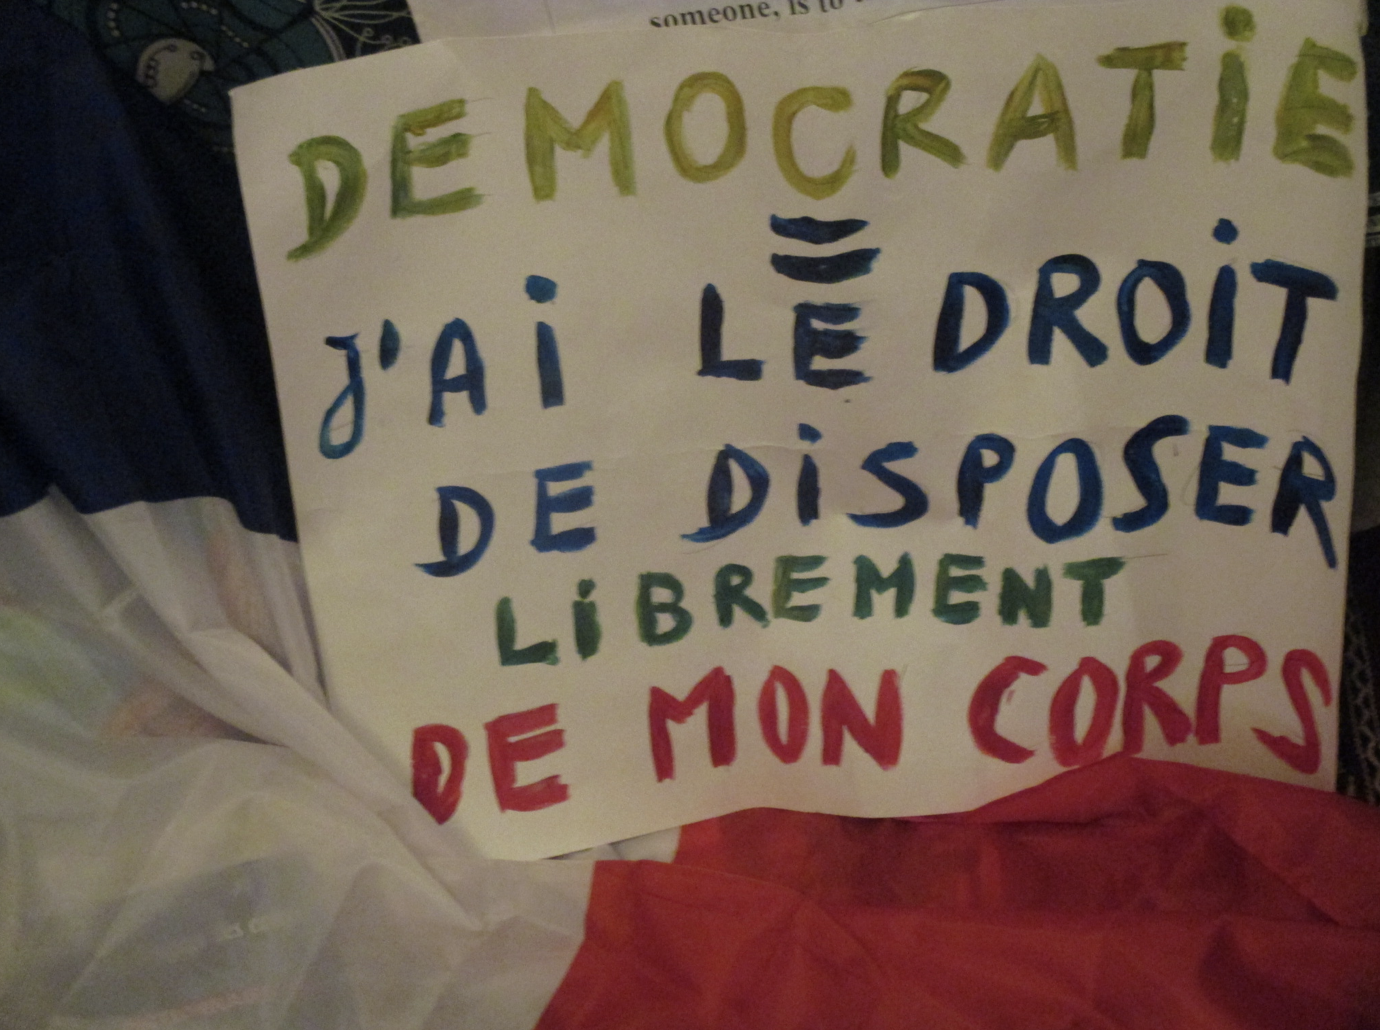 someone, is to
DEMOCRATiE
=
J'Ai LE DROiT
DE DiSPOSER
LiBREMENT
DE MON CORPS